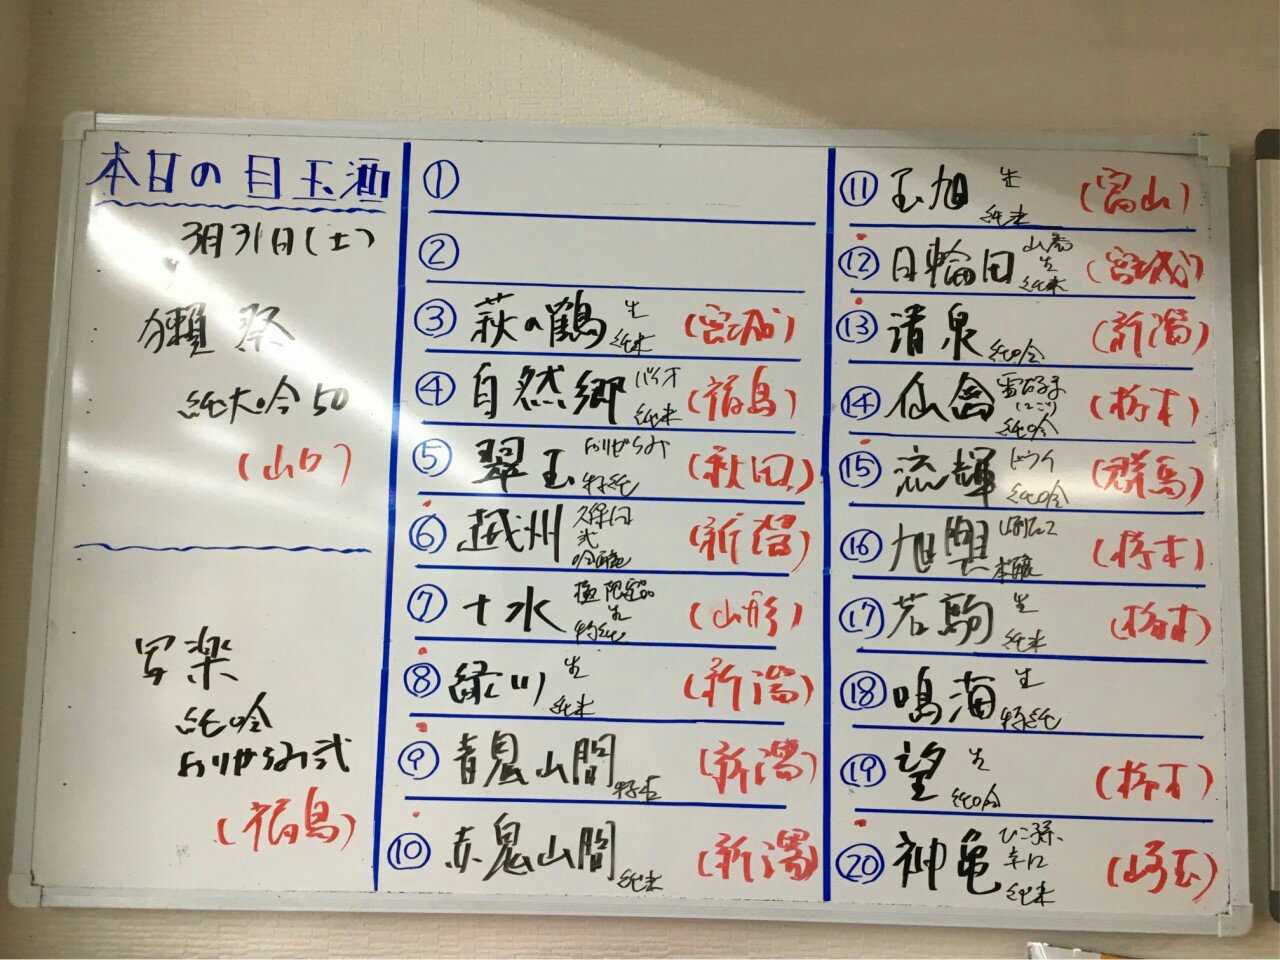 本日の目玉酒
3月31日(土)
獺祭
純大吟50
(山口)
写楽
純吟
おりがらみ弐
(福島)
①
②
③ 萩の鶴 生 純米 (宮城)
④ 自然郷 バイオ 純米 (福島)
⑤ 翠玉 おりがらみ 特純 (秋田)
⑥ 越州 久保田 弐 吟醸 (新潟)
⑦ 十水 極限定品 生 特純 (山形)
⑧ 緑川 生 純米 (新潟)
⑨ 青鬼山間 特本 (新潟)
⑩ 赤鬼山間 純米 (新潟)
⑪ 玉旭 生 純米 (富山)
⑫ 日輪田 山廃 生 純米 (宮城)
⑬ 清泉 純吟 (新潟)
⑭ 仙禽 雪だるま にごり 純吟 (栃木)
⑮ 流輝 純吟 (群馬)
⑯ 旭興 本醸 (栃木)
⑰ 若駒 生 純米 (栃木)
⑱ 鳴海 生 特純
⑲ 望 生 純吟 (栃木)
⑳ 神亀 ひこ孫 辛口 純米 (埼玉)